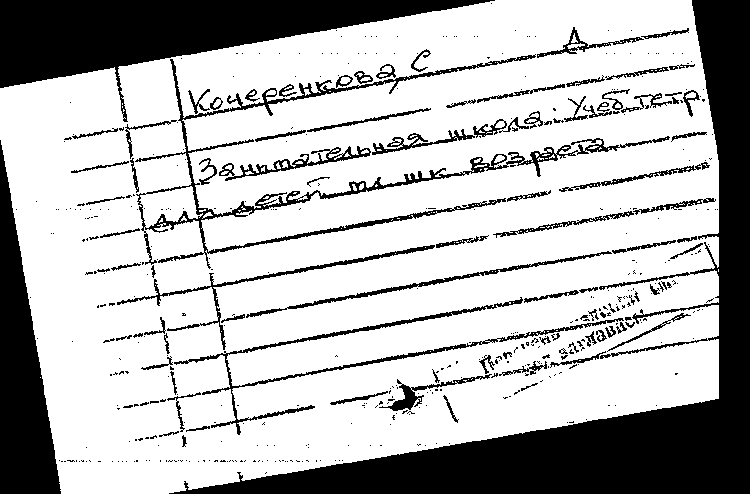 Д
Кочеренкова, С
Занимательная школа: Учеб тетр.
для детей мл шк возраста
под заглавием